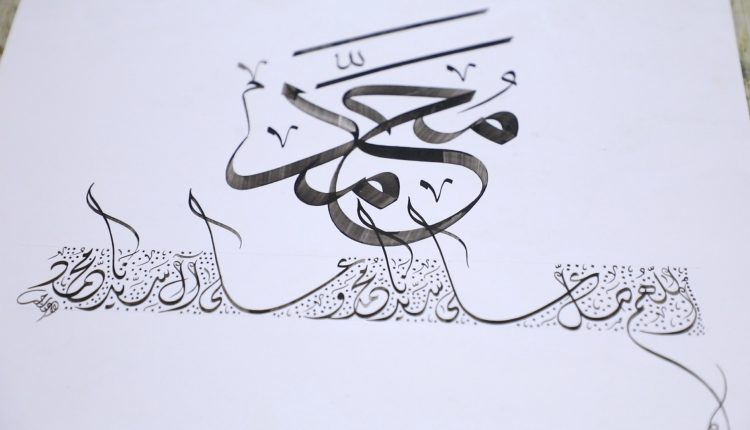 مُحمّد
اللّهم صل على سيّدنا محمد وعلى آل سيدنا محمد